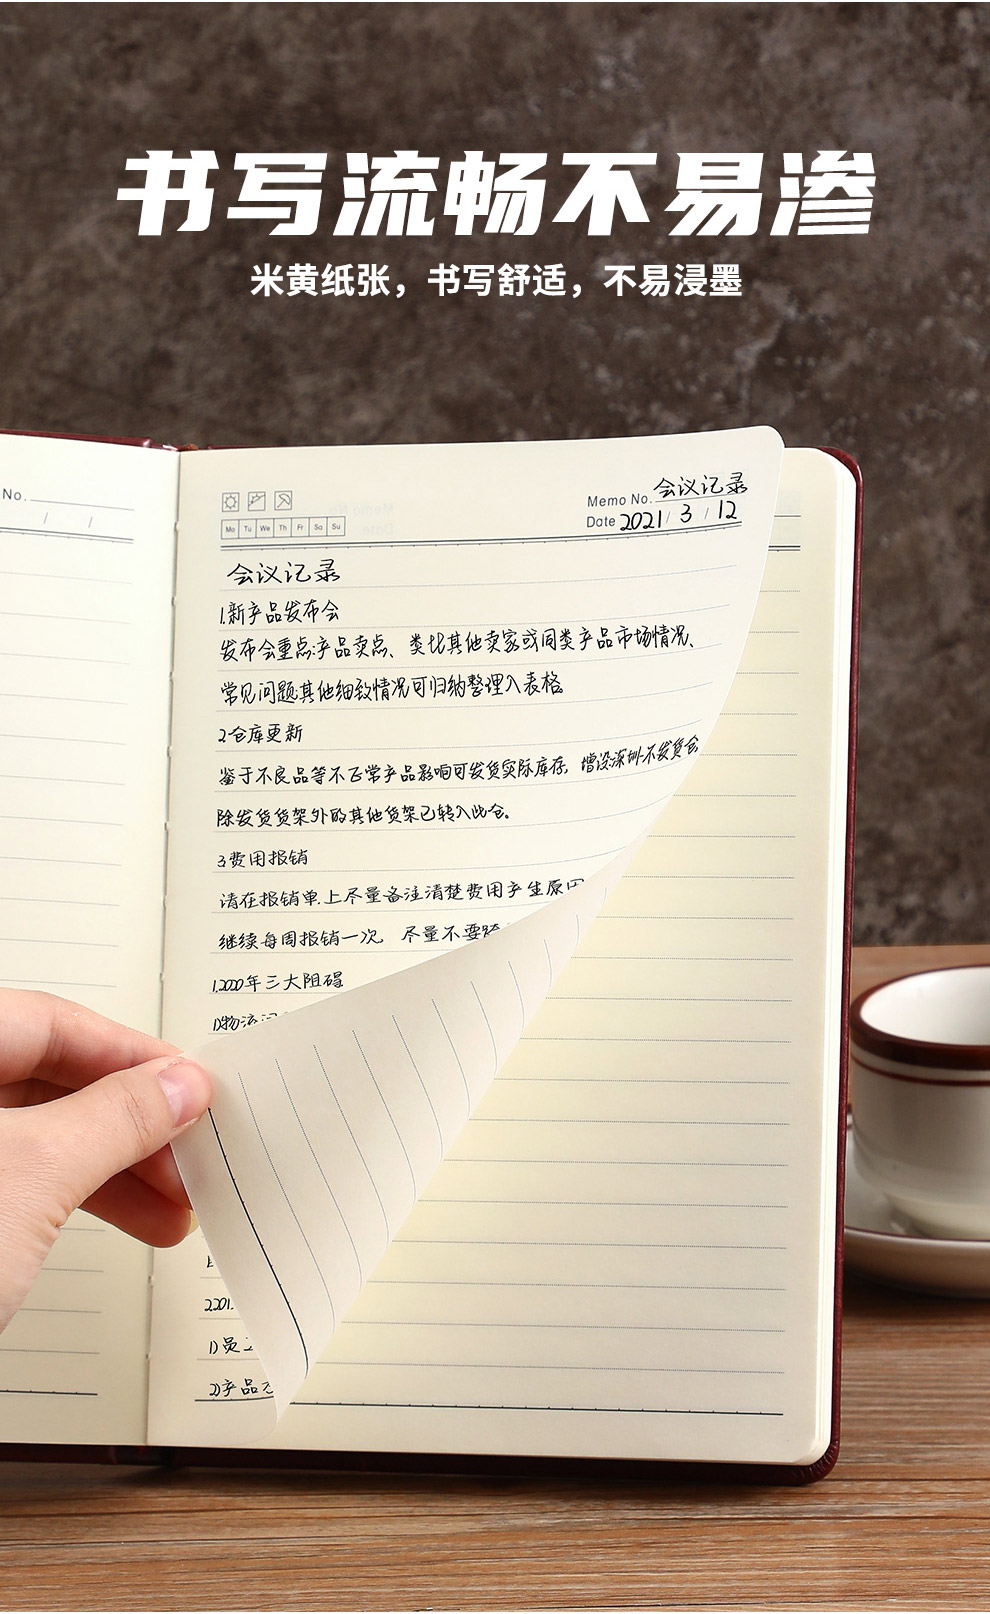 书写流畅不易渗
米黄纸张，书写舒适，不易浸墨
No.
Memo No. 会议记录
Date 2021 / 3 / 12
Mo Tu We Th Fr Sa Su
会议记录
1.新产品发布会
发布会重点:产品卖点、类比其他卖家或同类产品市场情况、
常见问题其他细致情况可归纳整理入表格
2仓库更新
鉴于不良品等不正常产品影响可发货实际库存，增设深圳-不发货仓
除发货货架外的其他货架已转入此仓。
3费用报销
请在报销单上尽量备注清楚费用产生原因
继续每周报销一次，尽量不要跨
1.2020年三大阻碍
1)物流
2.201.
1)员工
2)产品